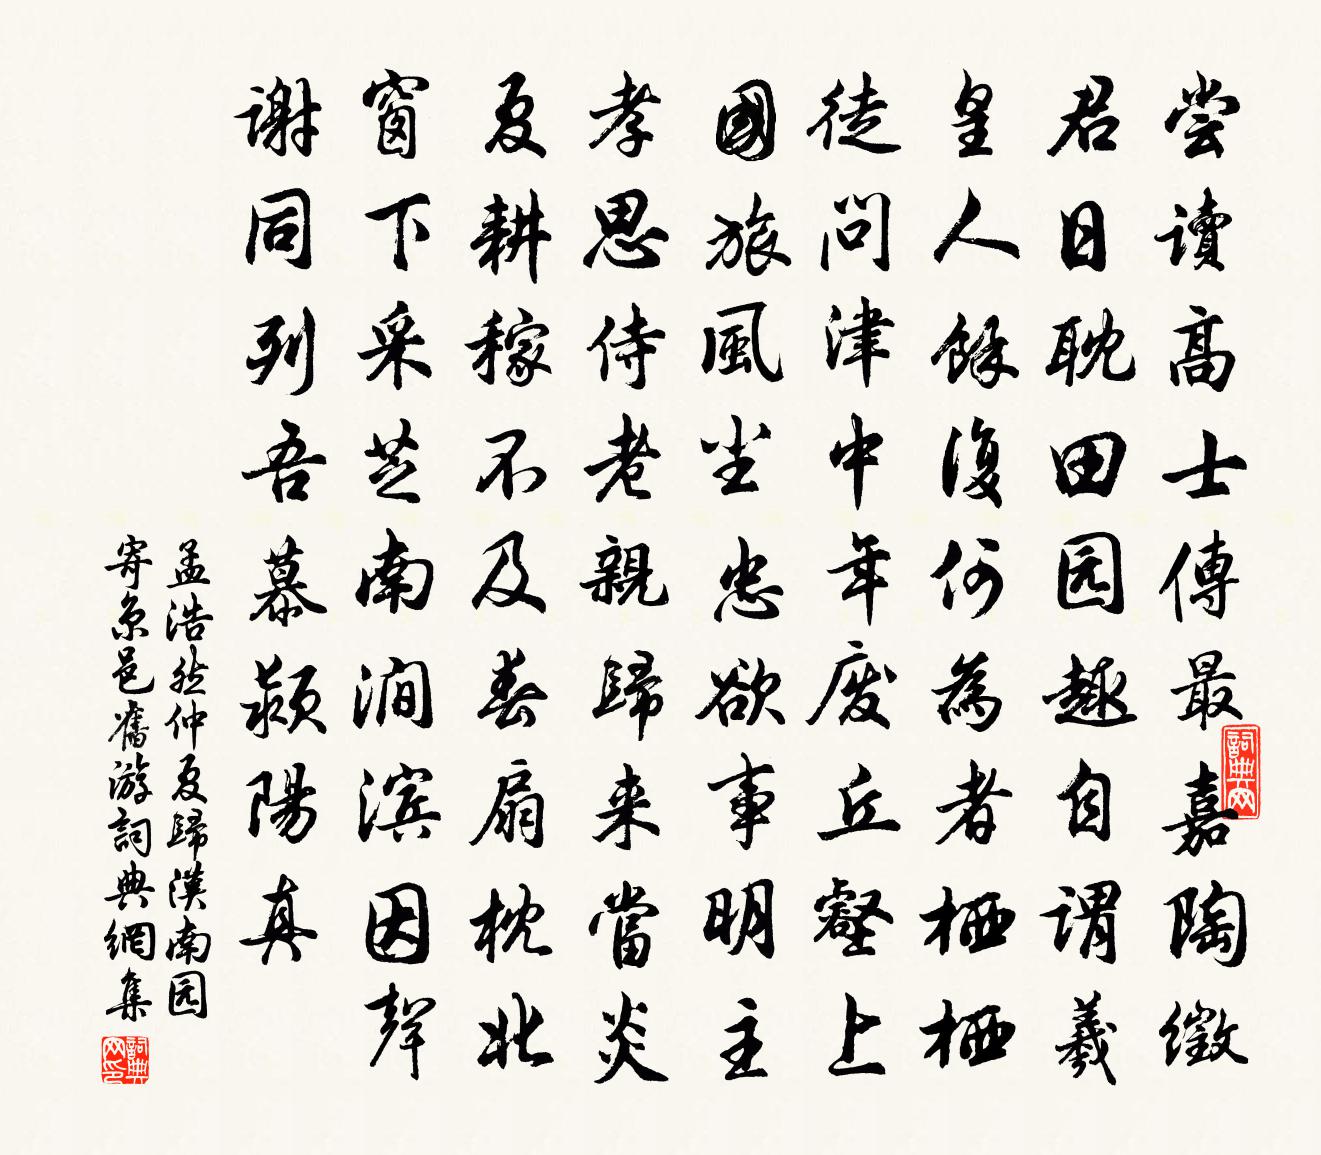 尝讀高士傳最嘉陶徵
君日耽田园趣自謂羲
皇人餘復何為者栖栖
徒問津中年废丘壑上
國旅風尘忠欲事明主
孝思侍老親歸来當炎
夏耕稼不及春扇枕北
窗下采芝南澗滨因聲
謝同列吾慕颍陽真
孟浩然仲夏歸漢南园
寄京邑舊游詞典網集
詞典网
詞典网印